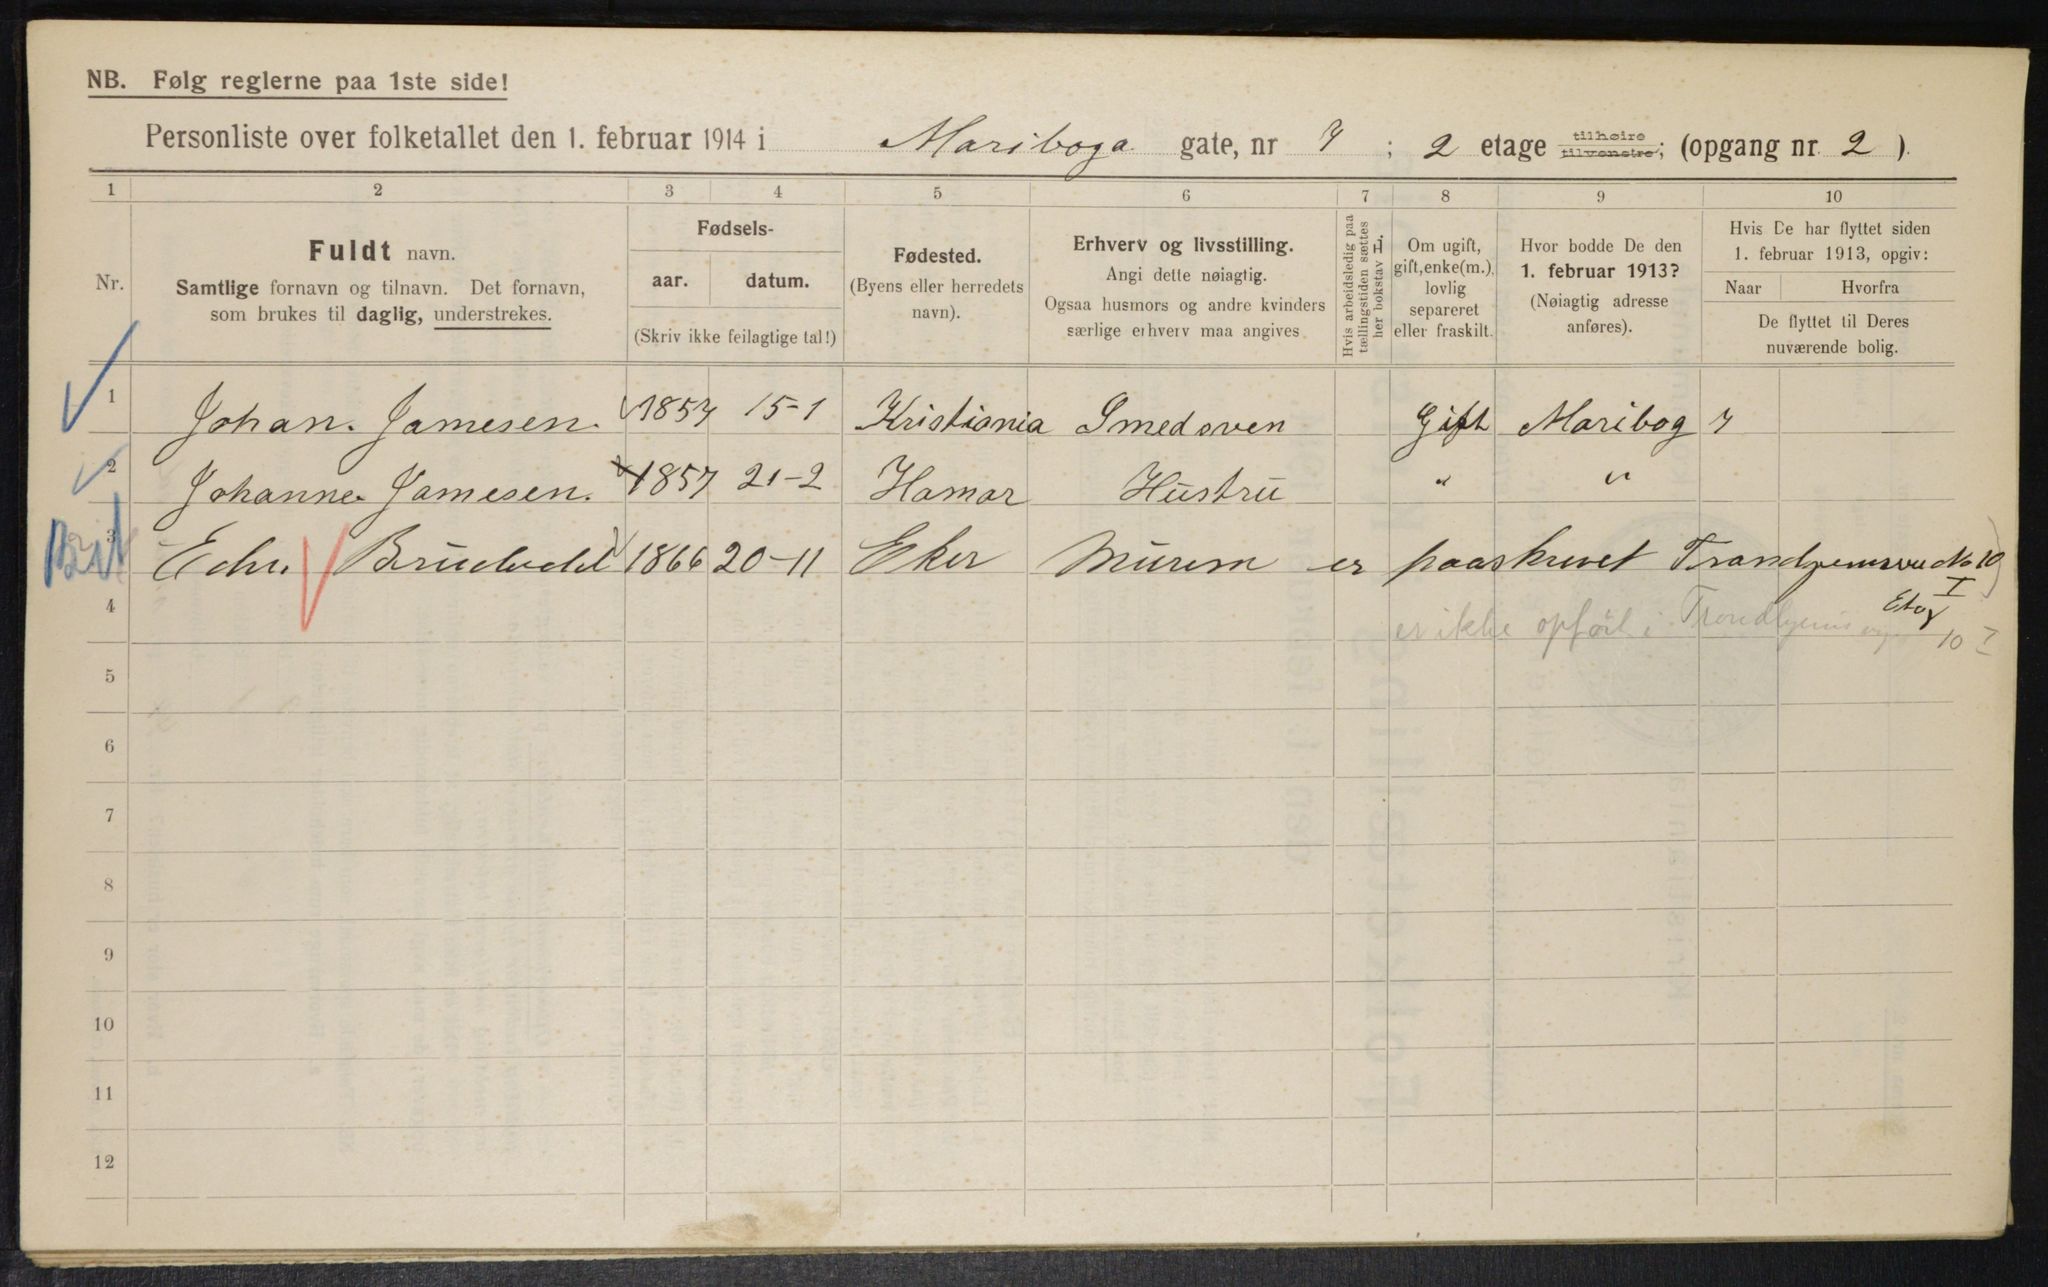 NB. Følg reglerne paa 1ste side!
Personliste over folketallet den 1. februar 1914 i Mariboga gate, nr 7 ; 2 etage tilhøire tilvenstre; (opgang nr 2 ).
1 2 3 4 5 6 7 8 9 10
Nr.
Fuldt navn.
Samtlige fornavn og tilnavn. Det fornavn,
som brukes til daglig, understrekes.
Fødsels-
aar. datum.
(Skriv ikke feilagtige tal!)
Fødested.
(Byens eller herredets
navn).
Erhverv og livsstilling.
Angi dette nøiagtig.
Ogsaa husmors og andre kvinders
særlige erhverv maa angives
Hvis arbeidsledig paa
tællingstiden sættes
her bokstav L.
Om ugift,
gift, enke(m.),
lovlig
separeret
eller fraskilt.
Hvor bodde De den
1. februar 1913?
(Nøiagtig adresse
anføres).
Hvis De har flyttet siden
1. februar 1913, opgiv:
Naar Hvorfra
De flyttet til Deres
nuværende bolig.
1 Johan. Jamesen. 1857 15-1 Kristiania Smedsven Gift Maribog 7
2 Johanne Jamesen. 1857 21-2 Hamar Hustru " "
3 Edv. 1866 20-11 Eker Murem er paaskrevet No 10
I
Etag
4 er ikke opført i Trondhjemsvei 10 I
5
6
7
8
9
10
11
12